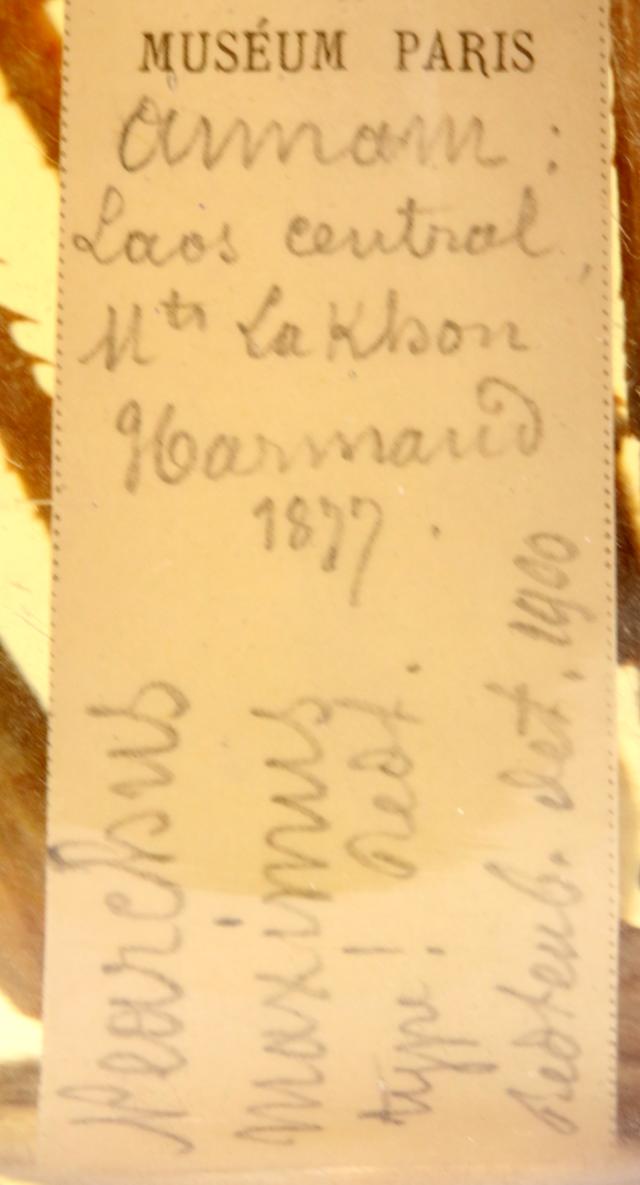 MUSÉUM PARIS
Annam :
Laos central,
Mts La Khon
Harmand
1877.
Nearchus
maximus
type! Redt.
Redtenb. det. 1900